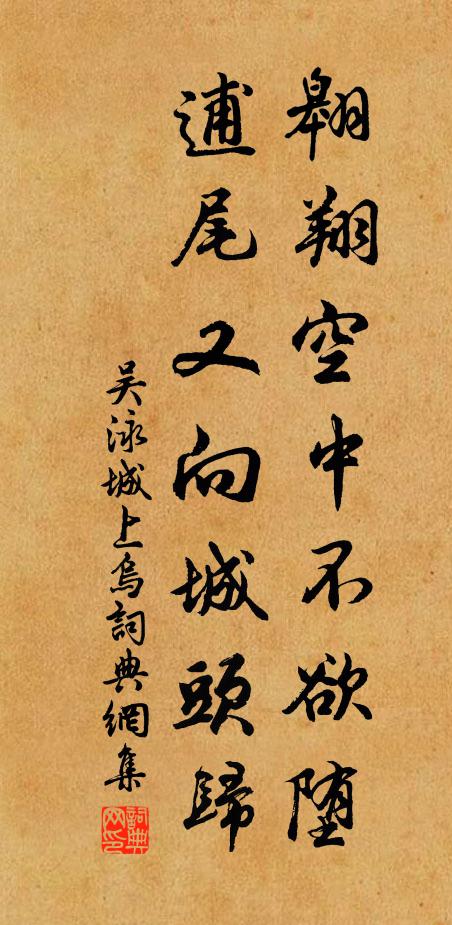 翱翔空中不欲堕
逋尾又向城頭歸
吴泳城上烏詞典網集
詞典
网印